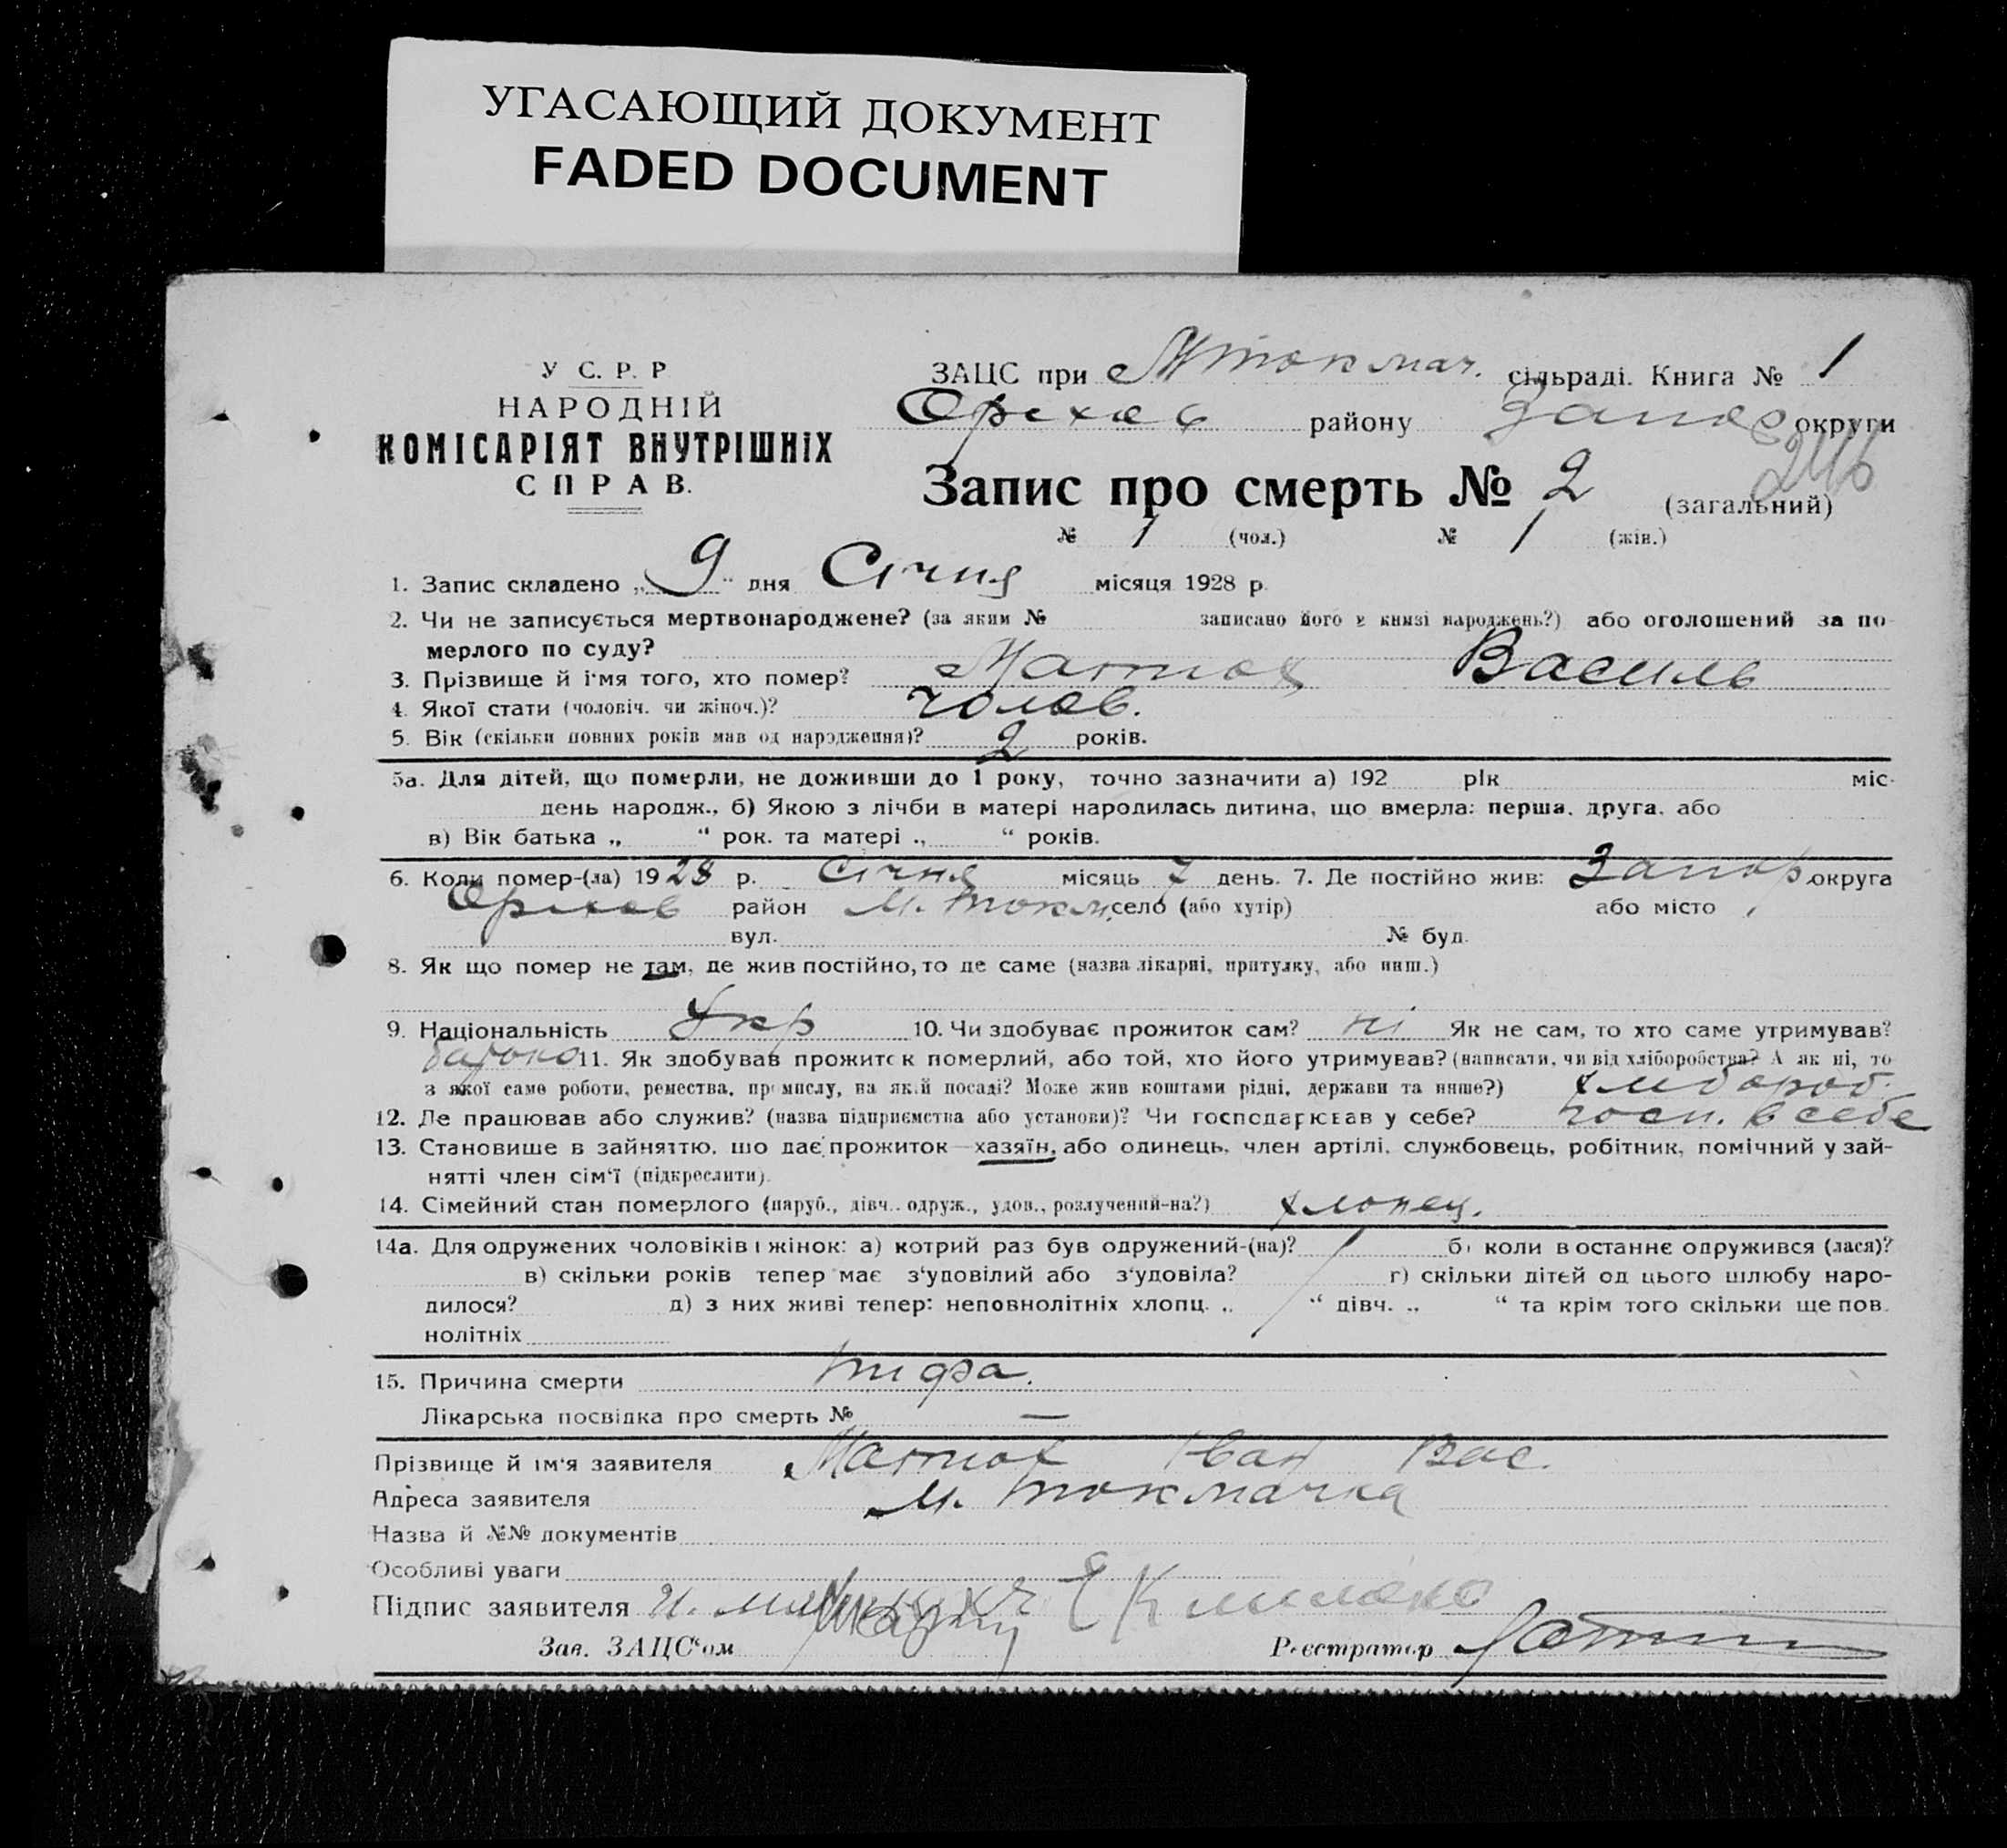 УГАСАЮЩИЙ ДОКУМЕНТ
FADED DOCUMENT
У С. Р. Р
НАРОДНІЙ
КОМІСАРІЯТ ВНУТРІШНІХ
СПРАВ.
ЗАЦС при М токмач. сільраді. Книга № 1
Орехов району Запор округи
Запис про смерть № 2 (загальний)
№ 1 (чол.) № 1 (жін.)
1. Запис складено „ 9 “ дня Січня місяця 1928 р.
2. Чи не записується мертвонароджене? (за яким № записано його в книзі народжень?) або оголошений за по-
мерлого по суду?
3. Прізвище й імя того, хто помер? Матюх Василь
4. Якої стати (чоловіч. чи жіноч.)? чолов.
5. Вік (скільки повних років мав од народження)? 2 років.
5а. Для дітей, що померли, не доживши до 1 року, точно зазначити а) 192 рік міс.
день народж., б) Якою з лічби в матері народилась дитина, що вмерла: перша, друга, або
в) Вік батька „ “ рок. та матері „ “ років.
6. Коли помер-(ла) 1928 р. Січня місяць 7 день. 7. Де постійно жив: Запор. округа
Орехов район М. Токм. село (або хутір) або місто
вул. № буд.
8. Як що помер не там, де жив постійно, то де саме (назва лікарні, притулку, або инш.)
9. Національність Укр 10. Чи здобуває прожиток сам? ні Як не сам, то хто саме утримував?
батько 11. Як здобував прожиток померлий, або той, хто його утримував? (написати, чи від хліборобства? А як ні, то
з якої саме роботи, ремества, промислу, на якій посаді? Може жив коштами рідні, держави та инше?) хлібороб.
12. Де працював або служив? (назва підприємства або установи)? Чи господарював у себе? госп. в себе
13. Становище в зайняттю, що дає прожиток—хазяїн, або одинець, член артілі, службовець, робітник, помічний у зай-
нятті член сім'ї (підкреслити).
14. Сімейний стан померлого (паруб., дівч., одруж., удов., розлучений-на?) хлопец.
14а. Для одружених чоловіків і жінок: а) котрий раз був одружений-(на)? б) коли востаннє одружився (лася)?
в) скільки років тепер має з'удовілий або з'удовіла? г) скільки дітей од цього шлюбу наро-
дилося? д) з них живі тепер: неповнолітніх хлопц. „ “ дівч. „ “ та крім того скільки ще пов.
нолітніх
15. Причина смерти тифа.
Лікарська посвідка про смерть № —
Прізвище й ім'я заявителя Матюх Іван Вас.
Адреса заявителя М. токмачка
Назва й №№ документів
Особливі уваги
Підпис заявителя И.
Зав. ЗАЦС'ом
Реєстратор